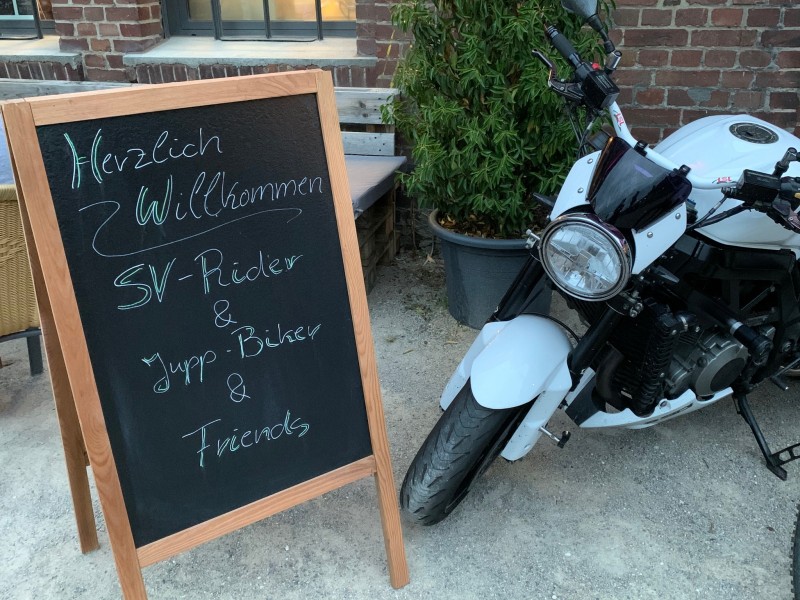 Herzlich
Willkommen
SV-Rider
&
Jupp-Biker
&
Friends